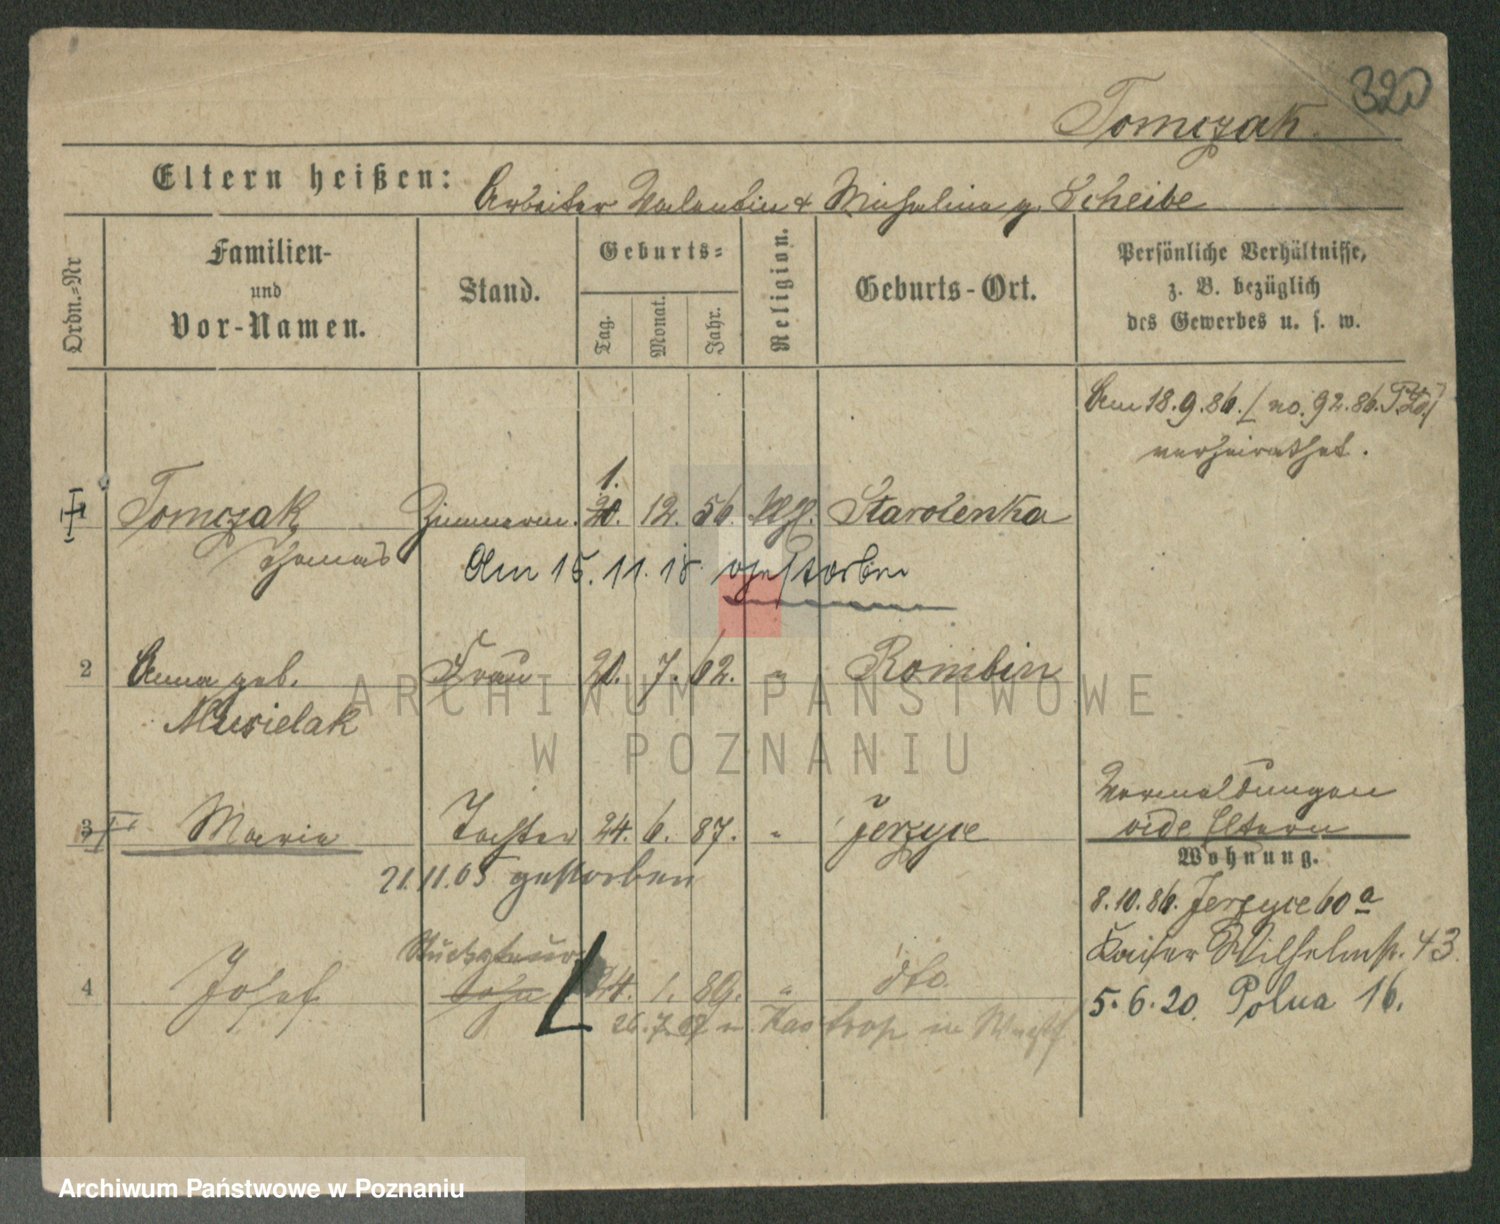 320
Tomczak.
Eltern heißen: Arbeiter Valentin & Michalina g. Scheibe
Ordn.-Nr
Familien- und Vor-Namen.
Stand.
Geburts-
Tag. Monat. Jahr.
Religion.
Geburts-Ort.
Persönliche Verhältnisse, z. B. bezüglich des Gewerbes u. s. w.
Am 18.9.86. [no. 92.86.
verheirathet.
1.
1 Tomczak Zimmerm. 20. 12. 56. Starolenka
Thomas
Am 15.11.18 gestorben
2 Anna geb. Frau 20. 7. 62. " Rombin
Musielak
3 Marie Tochter 24. 6. 87. " Jerzyce
21.11.05 gestorben
Vermeldungen
vide Eltern
Wohnung.
8.10.86. Jerzyce 60a
Kaiser Wilhelmstr. 43.
5.6.20. Polna 16.
4 Josef Sohn 24. 1. 89. " dto.
26.7.07 n. Kastrop in Westf
ARCHIWUM PAŃSTWOWE
W POZNANIU
Archiwum Państwowe w Poznaniu